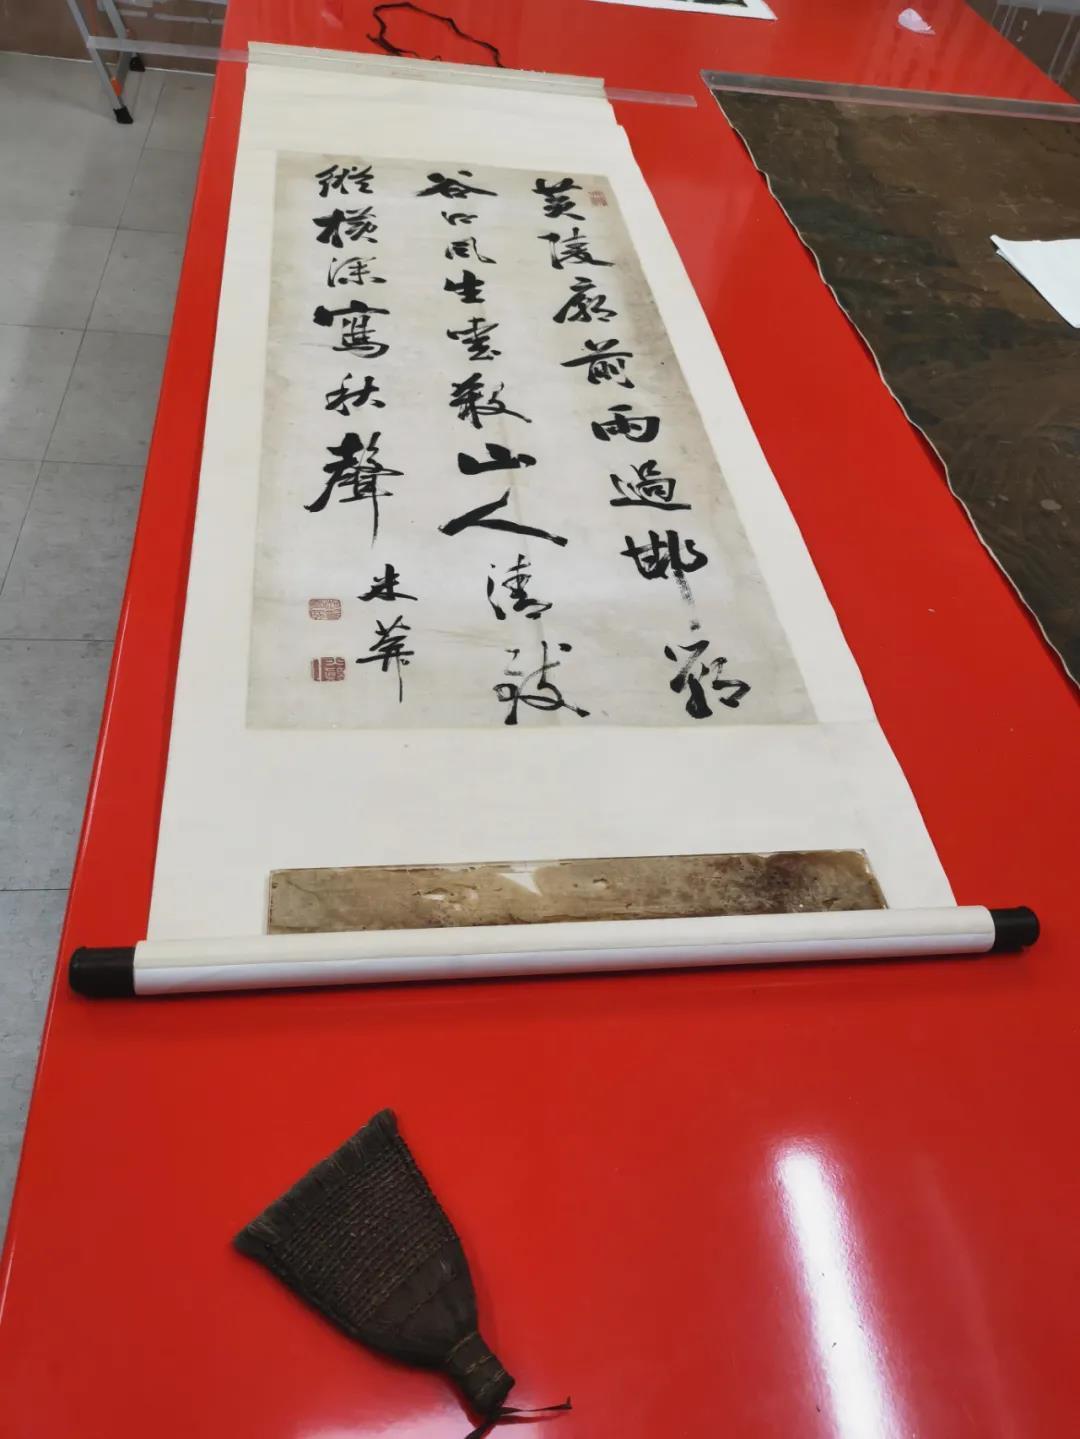 黃陵廟前雨過邯鄲
谷口風生雲散山人清致
縱橫深寫秋聲
米芾